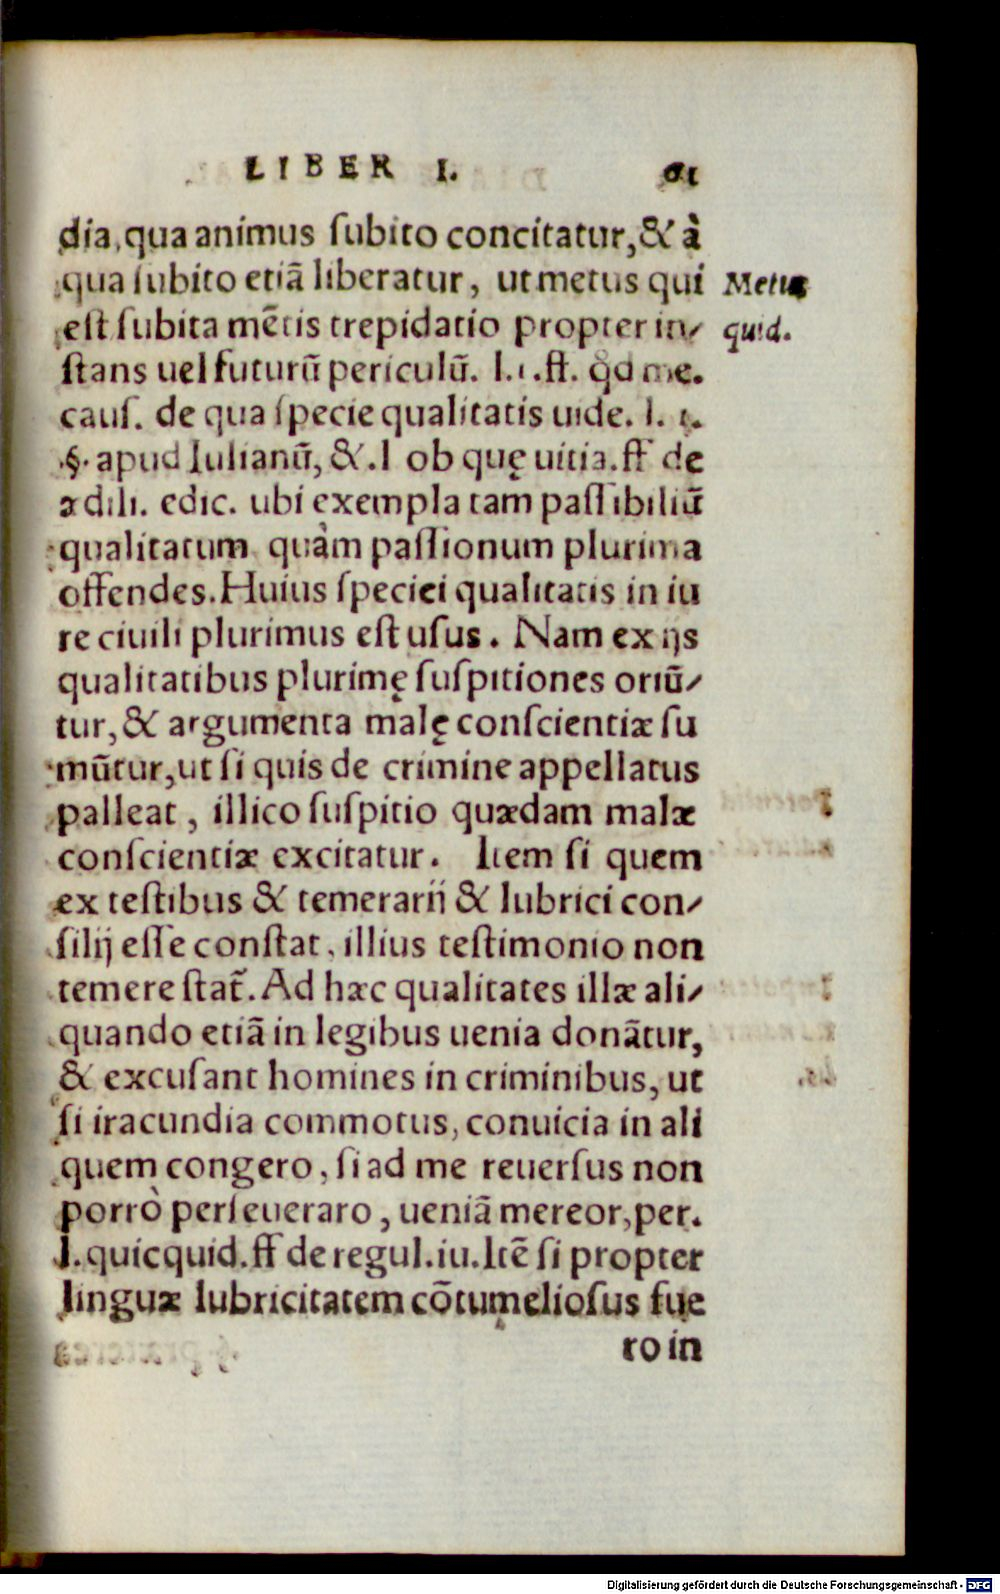 LIBER I. 61
dia, qua animus ſubito concitatur, & à
qua ſubito etiā liberatur, ut metus qui
Metus
eſt ſubita mētis trepidatio propter in⸗
quid.
ſtans uel futurū periculū. l.1.ff. qd me.
cauſ. de qua ſpecie qualitatis uide. l. 1.
.§. apud Iulianū, &.l ob quę uitia.ff de
ædili. edic. ubi exempla tam paſſibiliū
qualitatum quàm paſſionum plurima
offendes. Huius ſpeciei qualitatis in iu
re ciuili plurimus eſt uſus. Nam ex ijs
qualitatibus plurimę ſuſpitiones oriū⸗
tur, & argumenta malę conſcientiæ ſu
mūtur, ut ſi quis de crimine appellatus
palleat, illico ſuſpitio quædam malæ
conſcientiæ excitatur. Item ſi quem
ex teſtibus & temerarii & lubrici con⸗
ſilij eſſe conſtat, illius teſtimonio non
temere ſtat̃. Ad hæc qualitates illæ ali⸗
quando etiā in legibus uenia donātur,
& excuſant homines in criminibus, ut
ſi iracundia commotus, conuicia in ali
quem congero, ſi ad me reuerſus non
porrò perſeueraro, ueniā mereor, per.
l. quicquid. ff de regul. iu. Itē ſi propter
linguæ lubricitatem cōtumelioſus fue
ro in
Digitalisierung gefördert durch die Deutsche Forschungsgemeinschaft - DFG